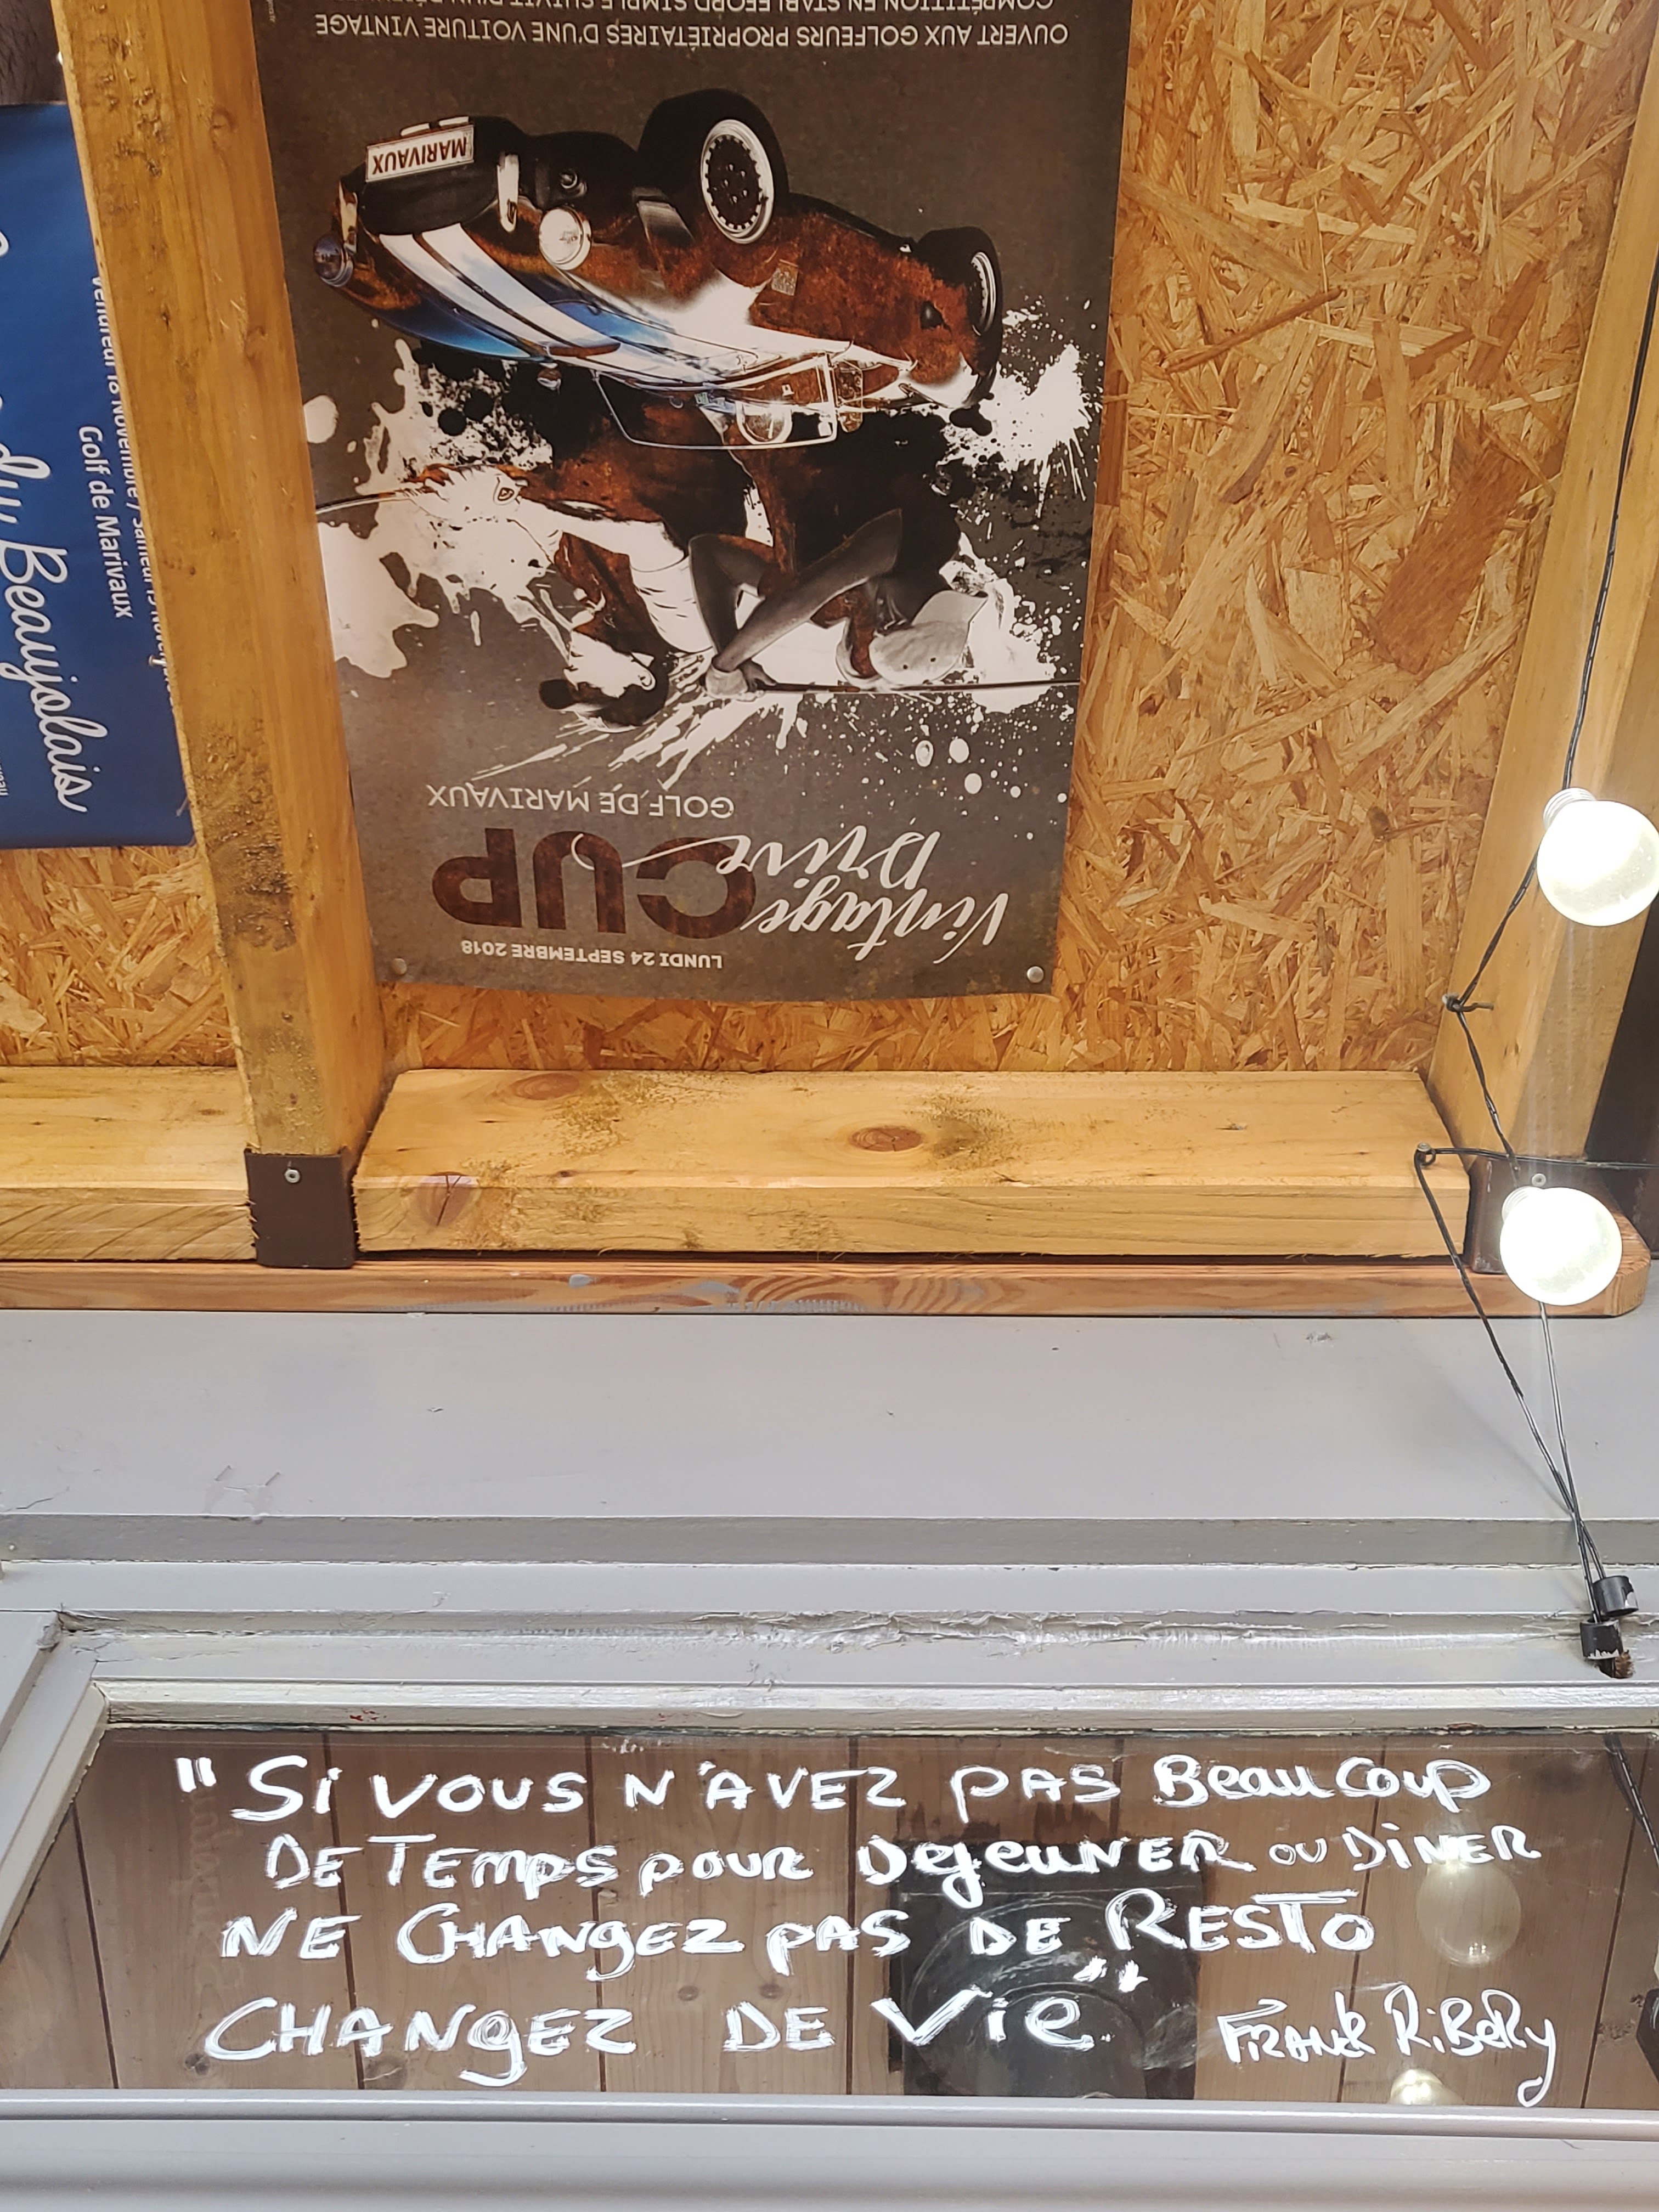 OUVERT AUX GOLFEURS PROPRIÉTAIRES D'UNE VOITURE VINTAGE
COMPÉTITION EN STABLEFORD SIMPLE SUIVIT D'UN
MARIVAUX
GOLF DE MARIVAUX
Vintage
Drive
CUP
LUNDI 24 SEPTEMBRE 2018
Beaujolais
Golf de Marivaux
"SI VOUS N'AVEZ PAS BeauCoup
DE TEMPS POUR DeJeuNER OU DiNER
NE CHANgEZ PAS DE RESTO
CHANgEZ DE Vie."
FRANCK RiBERy